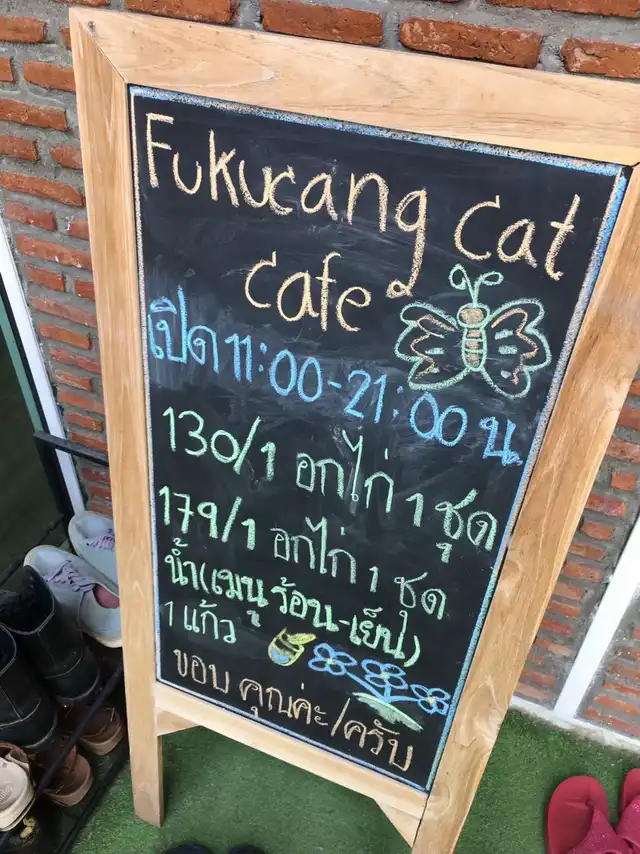 Fukucang cat
cafe
เปิด 11:00-21:00 น.
130/1 อกไก่ 1 ชุด
179/1 อกไก่ 1 ชุด
น้ำ(เมนูร้อน-เย็น)
1 แก้ว
ขอบคุณค่ะ/ครับ